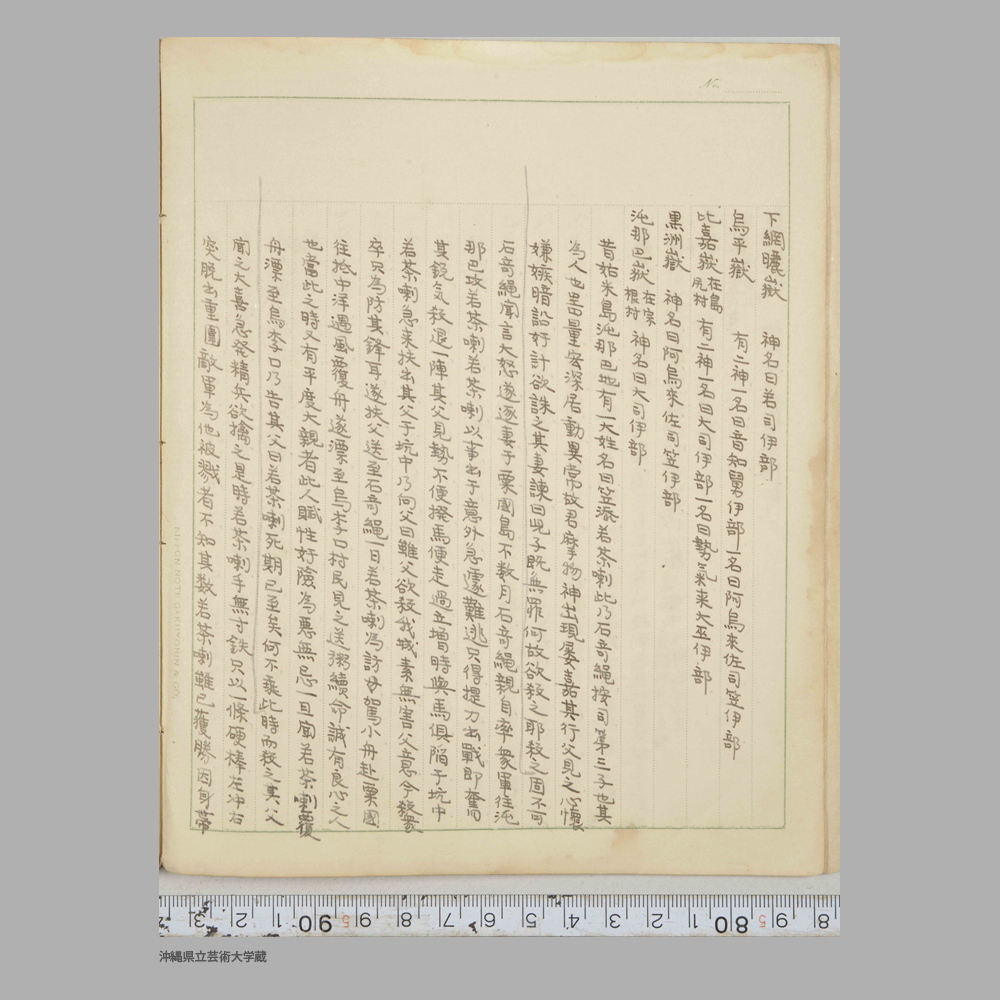 No.
下網曬嶽 神名曰若司伊部
烏平嶽 有二神一名曰音知舅伊部一名曰阿烏來佐司笠伊部
比嘉嶽 在島尻村 有二神一名曰大司伊部一名曰勢氣来大丕伊部
黒洲嶽 神名曰阿烏來佐司笠伊部
沌那巴嶽 在宗根村 神名曰大司伊部
昔姑米島沌那巴地有一大姓名曰笠添若茶喇此乃石奇繩按司第三子也其
為人也器量宏深居動異常故君摩物神出現屡嘉其行父見之心懐
嫌嫉暗設奸計欲誅之其妻諫曰児子既無罪何故欲殺之耶殺之固不可
石奇繩聞言大怒遂逐妻于粟國島不数月石奇繩親自率衆軍往沌
那巴攻若茶喇若茶喇以事出于意外急遽難逃只得提刀出戰即奮
其鋭気殺退一陣其父見勢不便撥馬便走過立増時與馬倶陥于坑中
若茶喇急来扶出其父于坑中乃向父曰雖父欲殺我城素無害父意今殺衆
卒只為防其鋒耳遂扶父送至石奇繩一日若茶喇為訪母駕小舟赴粟國
往於中洋遇風覆舟遂漂至烏李口村民見之送粥續命誠有良心之人
也當此之時又有平度大親者此人賦性好險為悪無忌一旦聞若茶喇覆
舟漂至烏李口乃告其父曰若茶喇死期已至矣何不乘此時而殺之其父
聞之大喜急発精兵欲擒之是時若茶喇手無寸鉄只以一條硬棒左冲右
突脱出重圍敵軍為他被戮者不知其数若茶喇雖已獲勝因身帶
8 9 5 80 1 2 3 4 5 6 7 8 9 5 90 1 2 3
沖縄県立芸術大学蔵